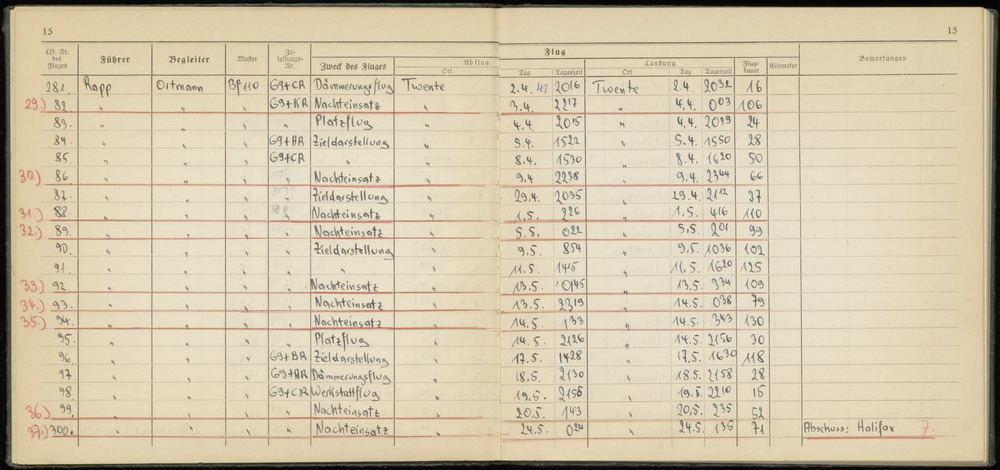 15 15
Lfd. Nr. des Fluges Führer Begleiter Muster Zulassungs-Nr. Zweck des Fluges Flug Bemerkungen
Abflug Landung Flugdauer Kilometer
Ort Tag Tageszeit Ort Tag Tageszeit
281. Rapp Ortmann Bf 110 G9+CR Dämmerungsflug Twente 2.4. 43 2016 Twente 2.4. 2032 16
29.) 82 " " " G9+KR Nachteinsatz " 3.4. 2217 " 4.4. 003 106
83. " " " " Platzflug " 4.4. 2015 " 4.4. 2039 24
84. " " " G9+AR Zieldarstellung " 5.4. 1522 " 5.4. 1550 28
85. " " " G9+CR " " 8.4. 1530 " 8.4. 1620 50
30.) 86 " " " " Nachteinsatz " 9.4. 2238 " 9.4. 2344 66
87. " " " " Zieldarstellung " 29.4. 2035 " 29.4. 2112 37
31.) 88 " " " " Nachteinsatz " 1.5. 226 " 1.5. 416 110
32.) 89. " " " " Nachteinsatz " 5.5. 022 " 5.5. 201 99
90. " " " " Zieldarstellung " 9.5. 854 " 9.5. 1036 102
91. " " " " " " 11.5. " 11.5. 1620 125
33.) 92 " " " " Nachteinsatz " 13.5. 0145 " 13.5. 334 109
34.) 93. " " " " Nachteinsatz " 13.5. 2319 " 14.5. 038 79
35.) 94. " " " " Nachteinsatz " 14.5. 133 " 14.5. 343 130
95. " " " " Platzflug " 14.5. 2126 " 14.5. 2156 30
96. " " " G9+BR Zieldarstellung " 17.5. 1428 " 17.5. 1630 118
97 " " " G9+AR Dämmerungsflug " 18.5. 2130 " 18.5. 2158 28
98. " " " G9+CR Werkstattflug " 19.5. 2155 " 19.5. 2210 15
36.) 99. " " " " Nachteinsatz " 20.5. 143 " 20.5. 235 52
37.) 300. " " " " Nachteinsatz " 24.5. 024 " 24.5. 135 71 Abschuss: Halifax 7.